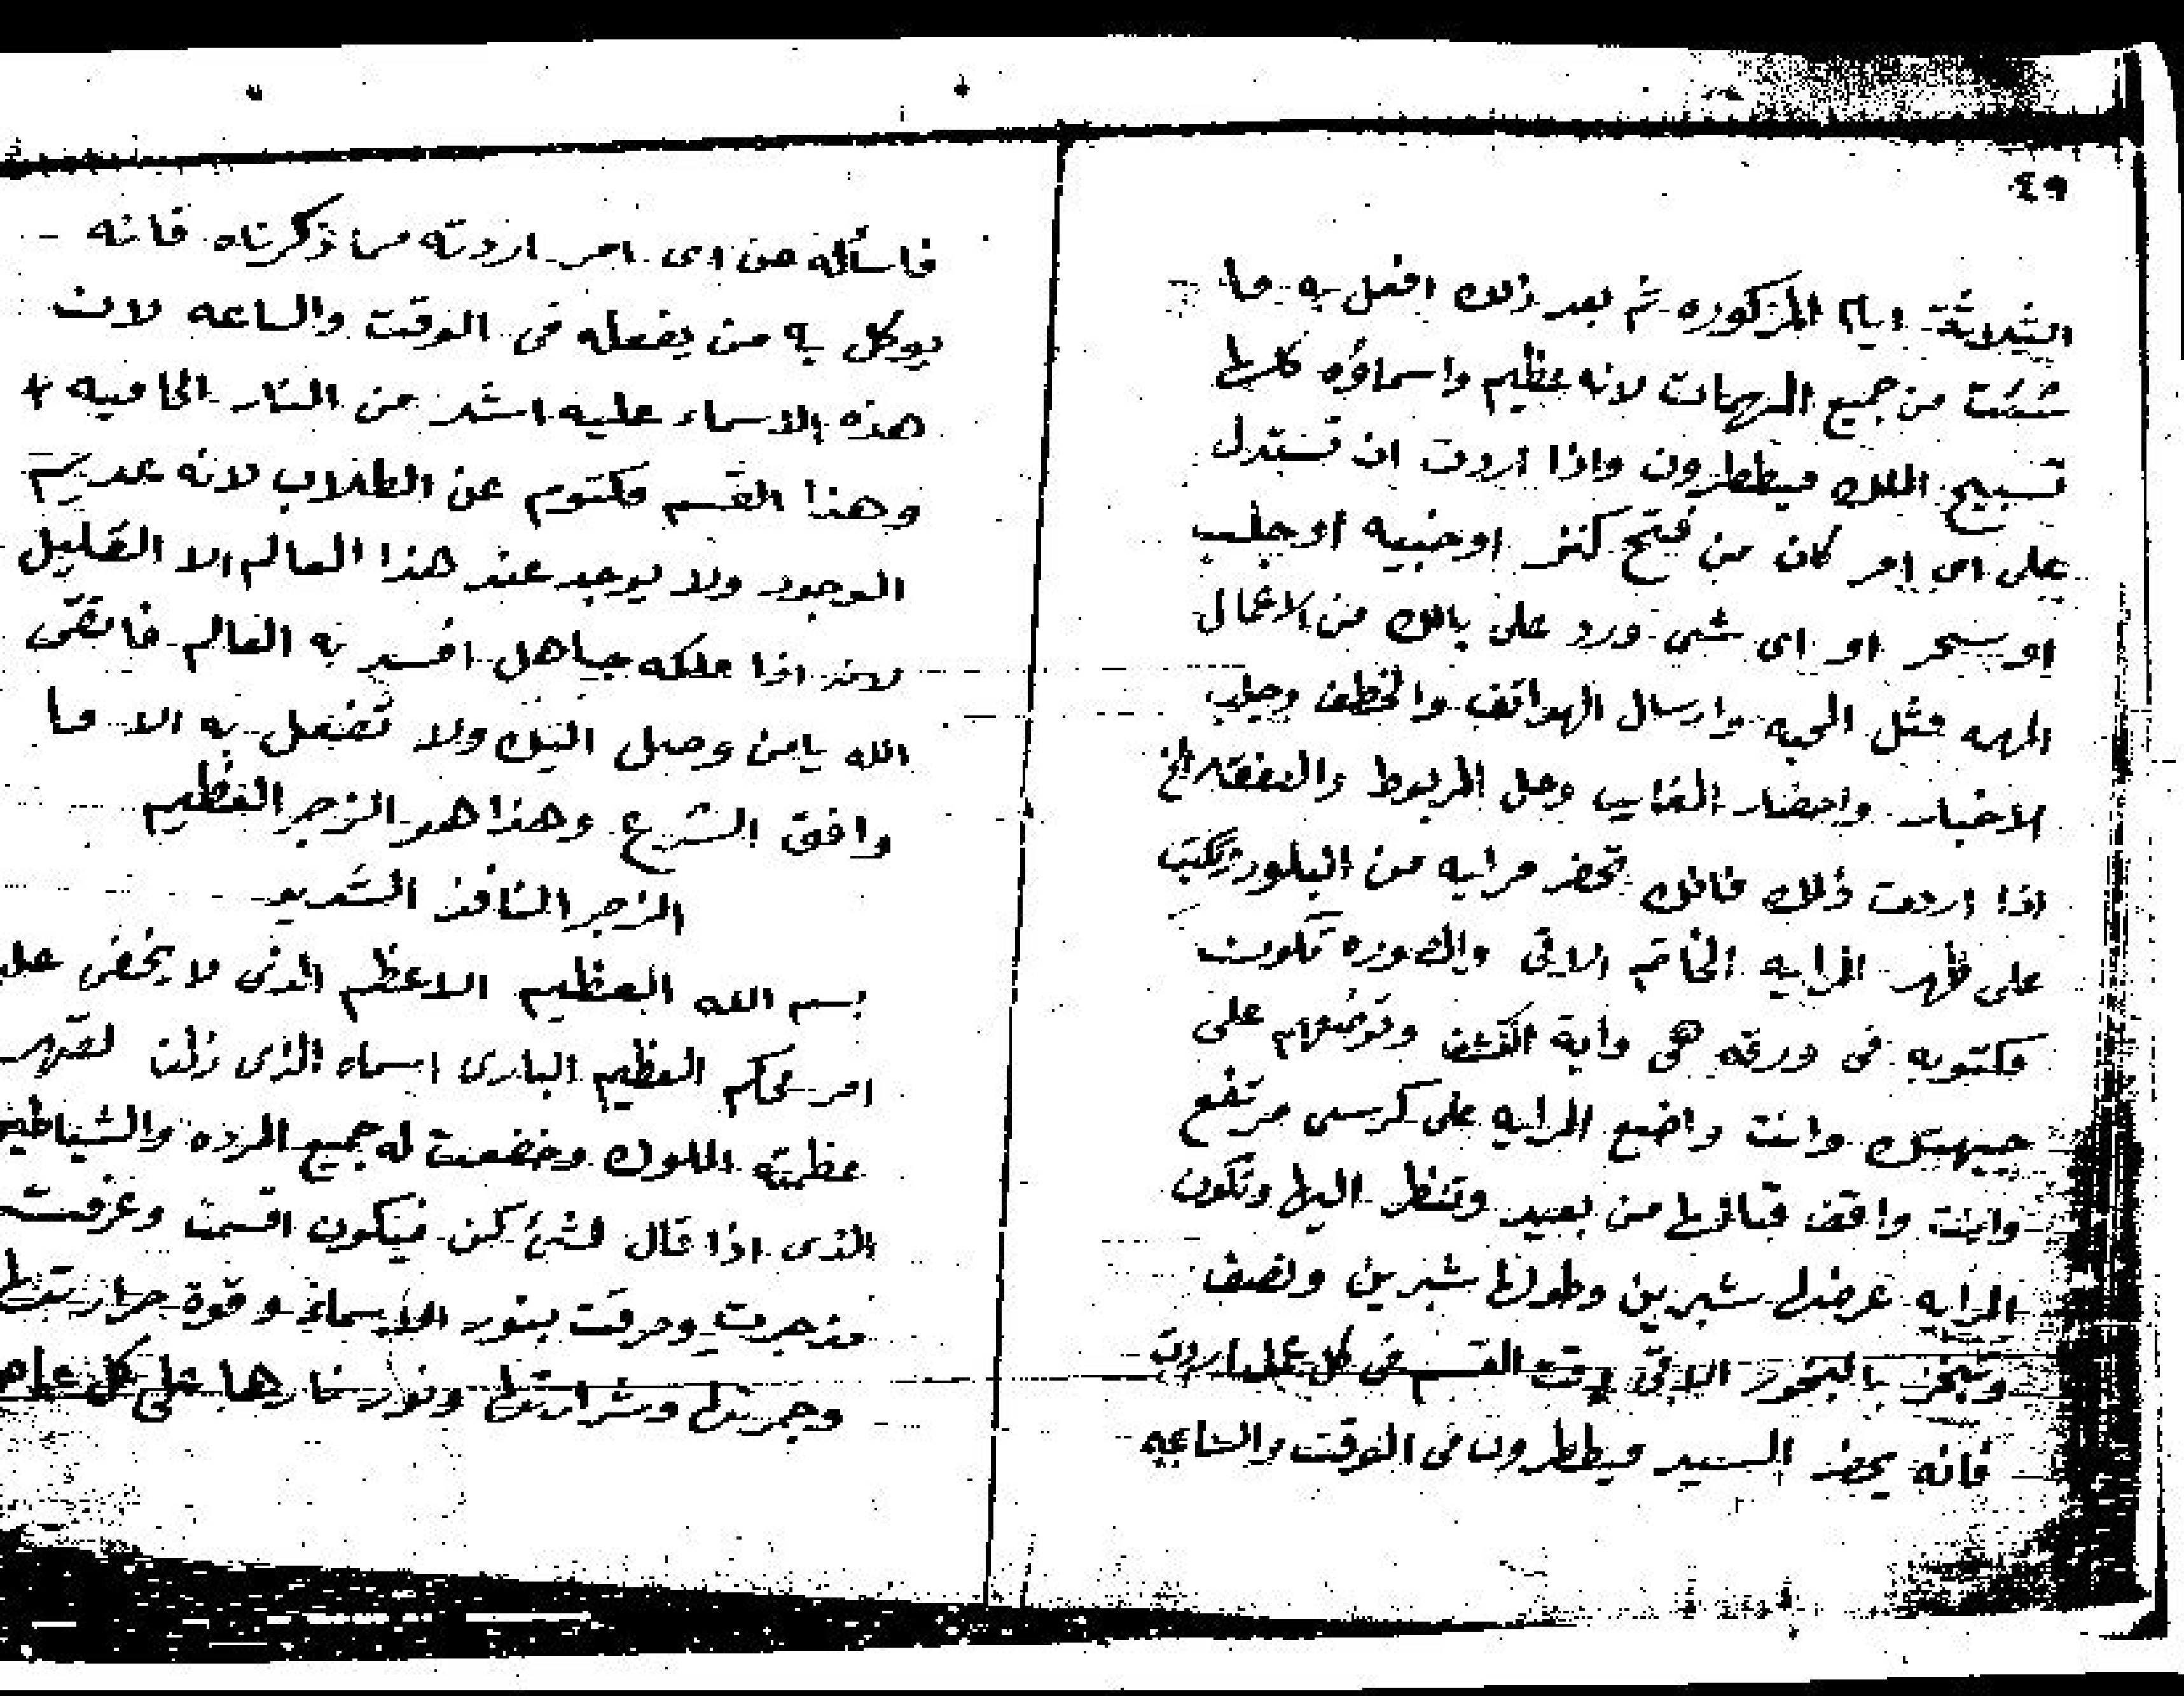 ٤٩
الثلاثة ايام المذكوره ثم بعد ذلك افعل به ما
شئت من جميع المهمات لانه عظيم واسماؤه كلها
تسبيح الملك ميططرون واذا اردت ان تستدل
على اى امر كان من فتح كنز او خبيه او جلب
او سحر او اى شى ورد على بالك من الاعمال
المهمه مثل المحبه وارسال الهواتف والخطف وجلب
الاخبار واحضار الغايب وحل المربوط والنفقه الخ
اذا اردت ذلك فانك تحضر مرايه من البلور وتكتب
على ظهر المرايه الخاتم الاتى والصوره تكون
مكتوبه فى ورقه هى واية الكشف وتوضعهم على
جبهتك وانت واضع المرايه على كرسى مرتفع
وانت واقف قبالها من بعيد وتنظر اليها وتكون
المرايه عرضها شبرين وطولها شبرين ونصف
وتبخر بالبخور الاتى وقت القسم فى كل عمل اردت
فانه يحضر السيد ميططرون فى الوقت والساعه
فاسأله عن اى امر اردته مما ذكرناه فانه
يوكل به من يفعله فى الوقت والساعه لان
هذه الاسماء عليه اشد من النار الحاميه
وهذا القسم مكتوم عن الطلاب لانه عديم
الوجود ولا يوجد عند هذا العالم الا القليل
لانه اذا ملكه جاهل افسد به العالم فاتقى
الله يامن وصل اليك ولا تفعل به الا ما
وافق الشرع وهذا هو الزجر العظيم
الزجر النافذ الشديد
بسم الله العظيم الاعظم الذى لا يخفى عليه
امر محكم العظيم البارى اسماه الذى زلت لقهر
عظمته الملوك وخضعت له جميع المرده والشياطين
الذى اذا قال لشئ كن فيكون اقسمت وعزمت
وزجرت وحرقت بنور الاسماء وقوة حرارتها
وجمرتها وشرارتها ونور نارها على كل